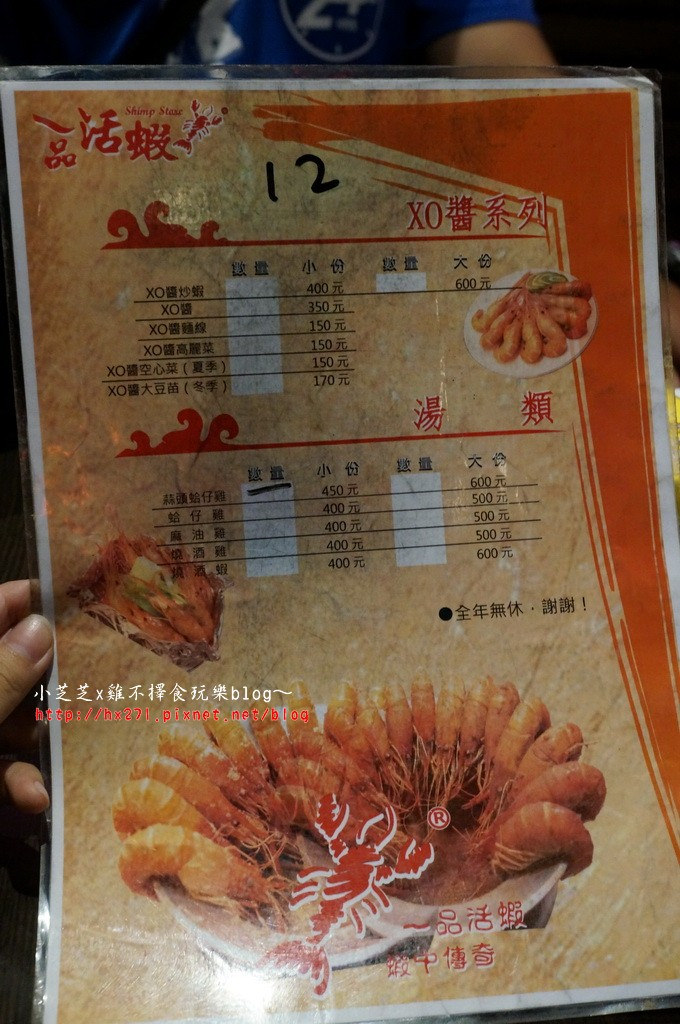 Shimp Staxe
一品活蝦®
12
XO醬系列
數量 小份 數量 大份
XO醬炒蝦 400元 600元
XO醬 350元
XO醬麵線 150元
XO醬高麗菜 150元
XO醬空心菜(夏季) 150元
XO醬大豆苗(冬季) 170元
湯類
數量 小份 數量 大份
蒜頭蛤仔雞 450元 600元
蛤仔雞 400元 500元
麻油雞 400元 500元
燒酒雞 400元 500元
燒酒蝦 400元 600元
●全年無休,謝謝!
小芝芝x雞不擇食玩樂blog~
http://hx271.pixnet.net/blog
®
一品活蝦
蝦中傳奇